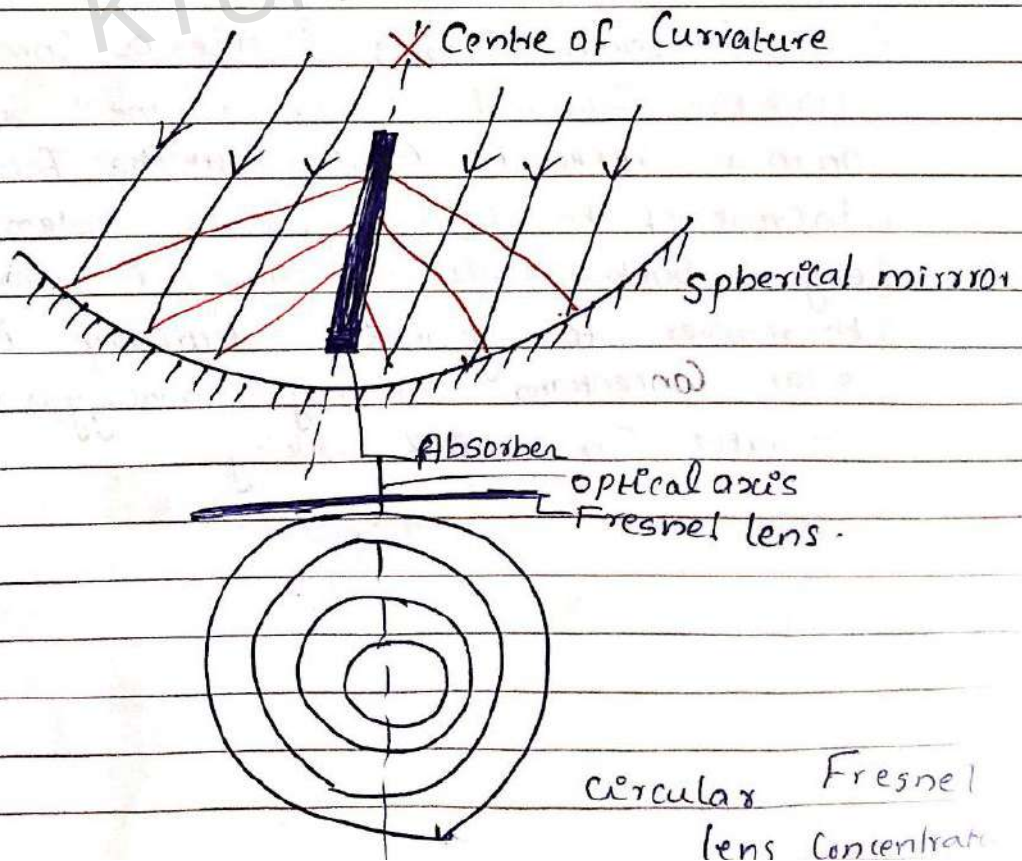 KTU
Centre of Curvature
Spherical mirrror
Absorber
optical axis
Fresnel lens.
circular Fresnel
lens Concentrat